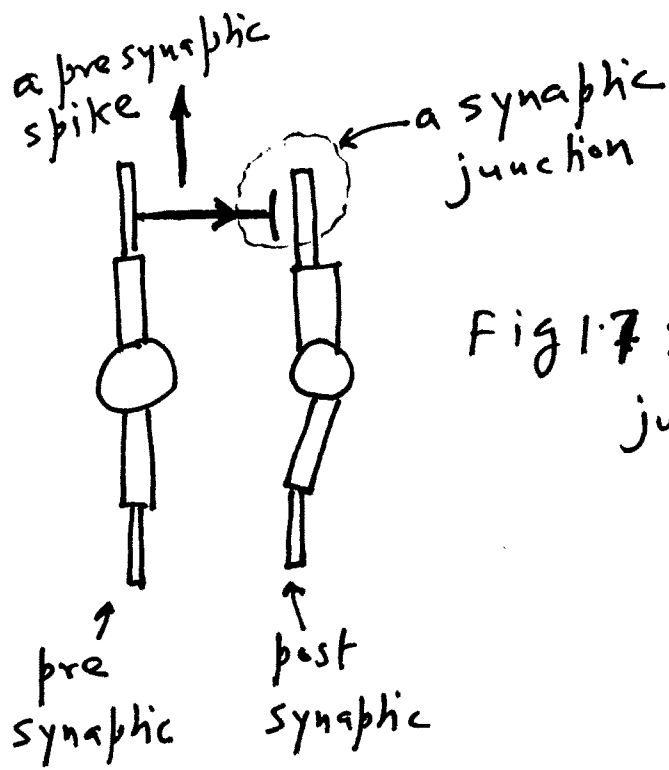 a presynaptic
spike
a synaptic
junction
Fig 1.7 :
ju
pre
synaptic
post
synaptic